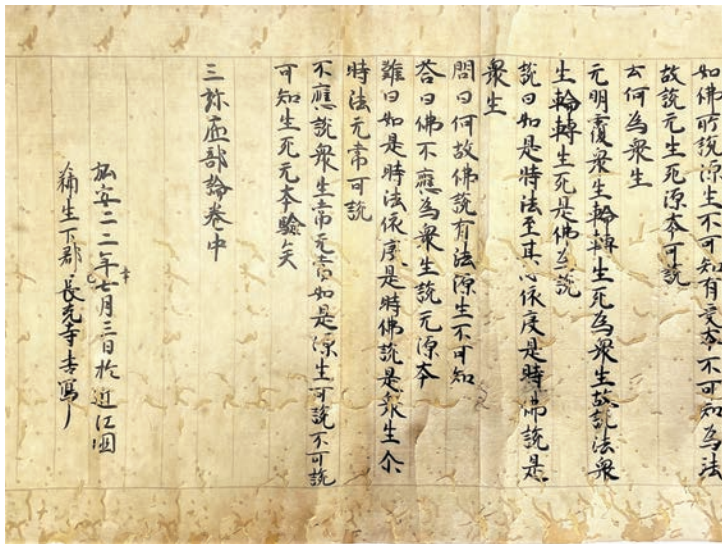 如佛所說源生不可知有言本不可知為法
故說元生死源本可說
云何為衆生
元明覆衆生輪轉生死為衆生故說法衆
生輪轉生死是佛無說
說曰如是時法至其心依度是時佛說是
衆生
問曰何故佛說有法源生不可知
荅曰佛不應為衆生說元源本
難曰如是時法依度是時佛說是衆生尒
時法元常可說
不應說衆生常元常如是源生可說不可說
可知生死元本驗矣
三弥底部論卷中
弘安二二年七月三日於近江国
蒲生下郡長光寺書写了